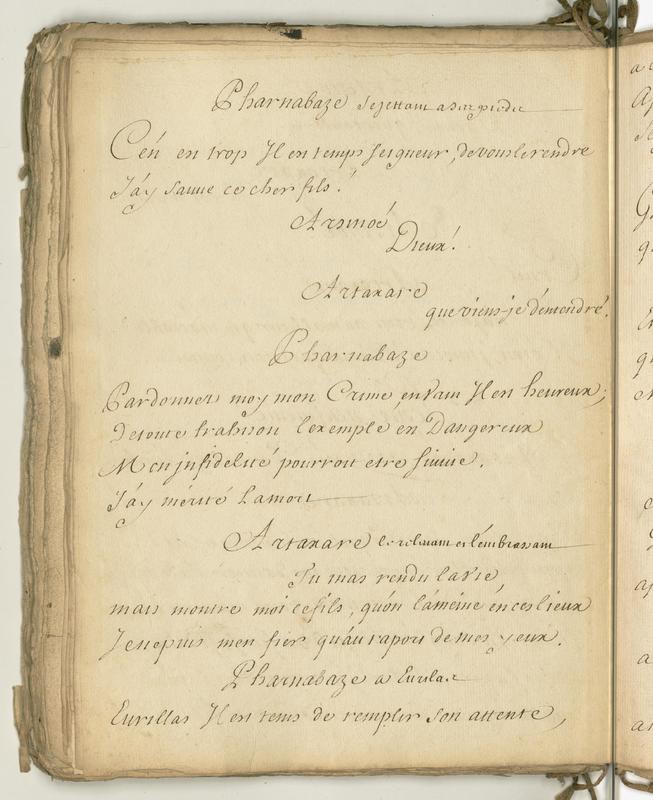 Pharnabaze se jettant a ses pieds
C'en est trop Il est temps seigneur, de vous le rendre
J'ay sauvé ce cher fils!
Arsinoé
Dieux!
Artaxare
que viens-je d'entendre.
Pharnabaze
Pardonnes moy mon Crime, en vain Il est heureux;
De toute trahison l'exemple en Dangereux
Mon infidelité pourroit etre suivie.
J'ay mérité la mort
Artaxare le relevant et l'embrassant
Tu mas rendu la vie,
mais montre moi ce fils, qu'on l'ameine en ces lieux
Je ne puis men fier qu'au raport de mes yeux.
Pharnabaze a Eurilas
Eurillas Il est tems de remplir son attente,